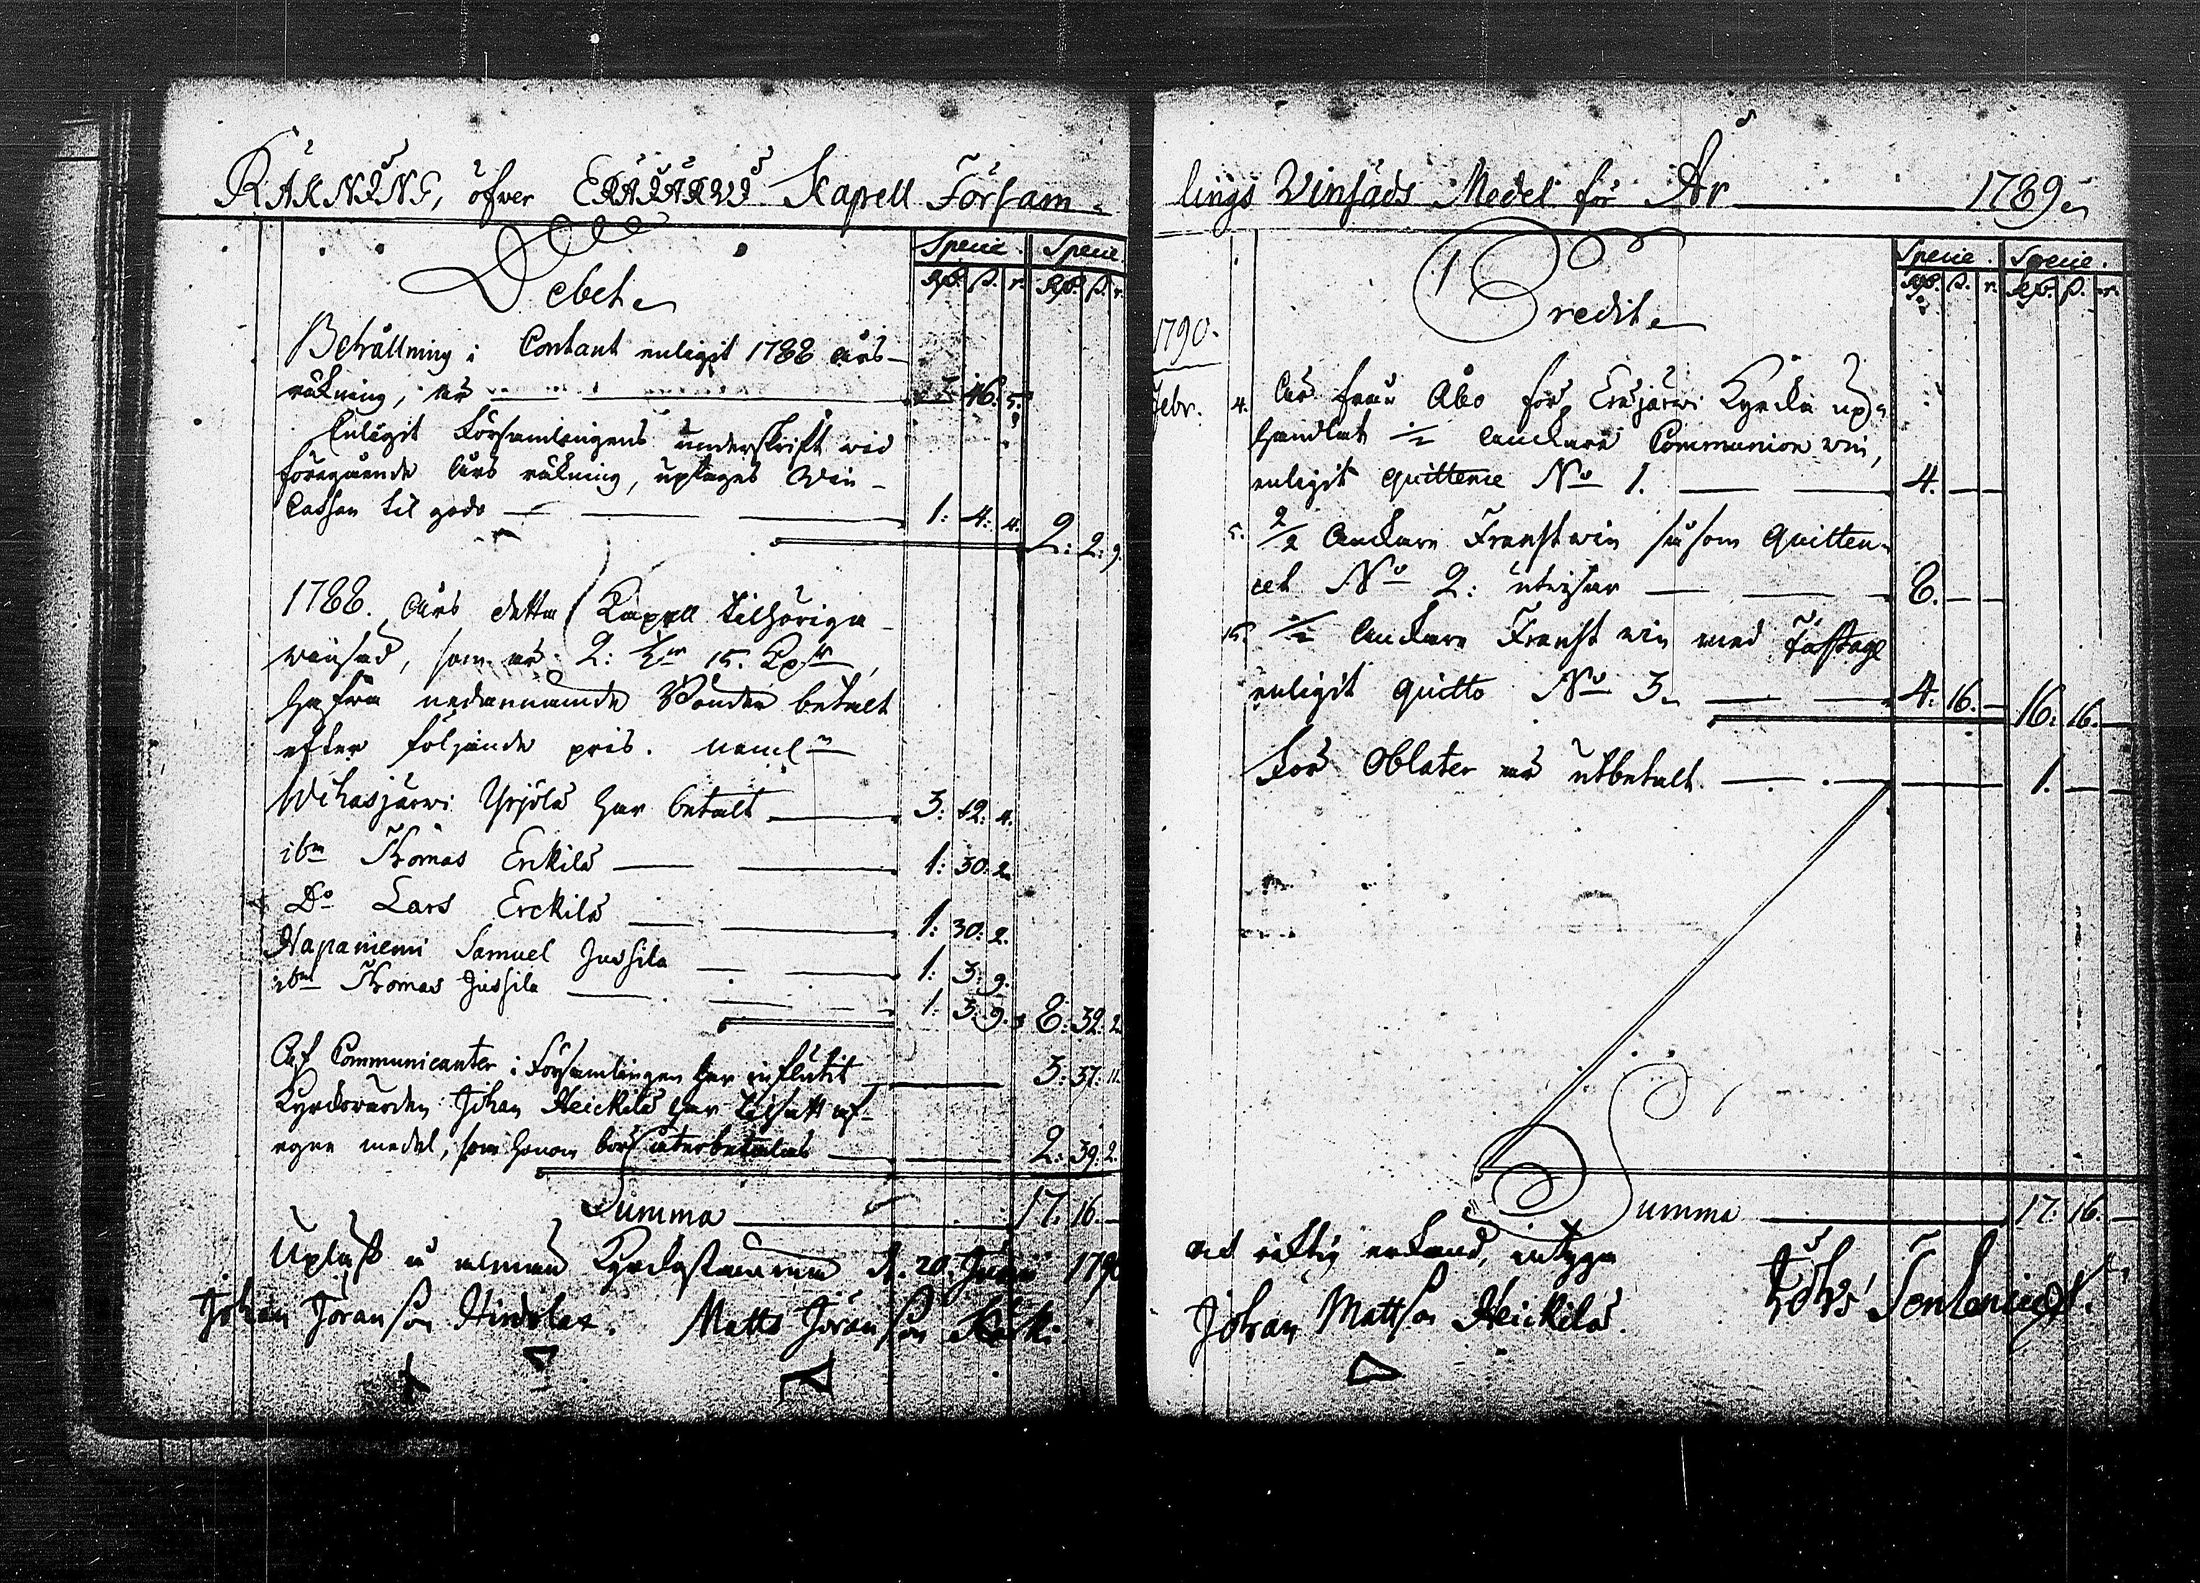 RÄKNING, öfver ERÄJÄRVI Kapell Församlings Vinsäds Medel för År 1789
Debet
Specie Specie
Rd. ß. r. Rd. ß. r.
Behållning i Contant enligit 1788 års
räkning, är 46. 5.
Enligit Församlingens underskrift vid
föregående års räkning, uptages Win-
Cassan til godo 1: 4: 4. 2: 2: 9.
1788. års detta Kapell tilhöriga
vinsäd, som är 2: 15. Kpr,
hafva nedannämde Bönder betalt
efter följande pris. neml.
Wehasjärvi Yrjölä har betalt 3: 12: 4.
ibm Thomas Erckilä 1: 30: 2.
Do Lars Erckilä 1: 30: 2.
Hapaniemi Samuel Jussila 1: 3: 9.
ibm Thomas Jussila 1: 3: 9. 8: 32: 2.
Af Communicanter i Församlingen har influtit 3: 37: 11.
Kyrckovärden Johan Heickilä har tilsatt af
egne medel, som honom bör återbetalas 2: 39: 2.
Summa 17: 16. —
Upläst å allmän Kyrckostämma d. 20. Junii 1790
Johan Jöransson Matts Jöransson
Credit
Specie. Specie.
Rd. ß. r. Rd. ß. r.
1790.
Febr. 4. Är från Åbo för Eräjärvi Kyrcka up-
handlat 1/2 anckare Communion vin,
enligit quittence No 1. 4. — —
5. 2/2 Anckare Franst vin såsom Quitten-
cet No 2: utvisar 8. — —
15. 1/2 Anckare Franst vin med Fastage
enligit quitto No 3. 4: 16. — 16: 16. —
För Oblater är utbetalt 1. — —
Summa 17: 16. —
och riktig erkänd, intyga
Johan Mattsson Heickilä.